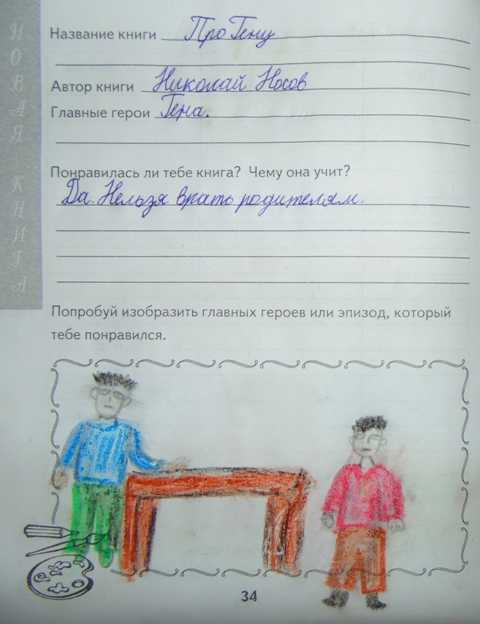 НОВАЯ КНИГА
Название книги Про Гену
Автор книги Николай Носов
Главные герои Гена.
Понравилась ли тебе книга? Чему она учит?
Да. Нельзя врать родителям.
Попробуй изобразить главных героев или эпизод, который
тебе понравился.
34